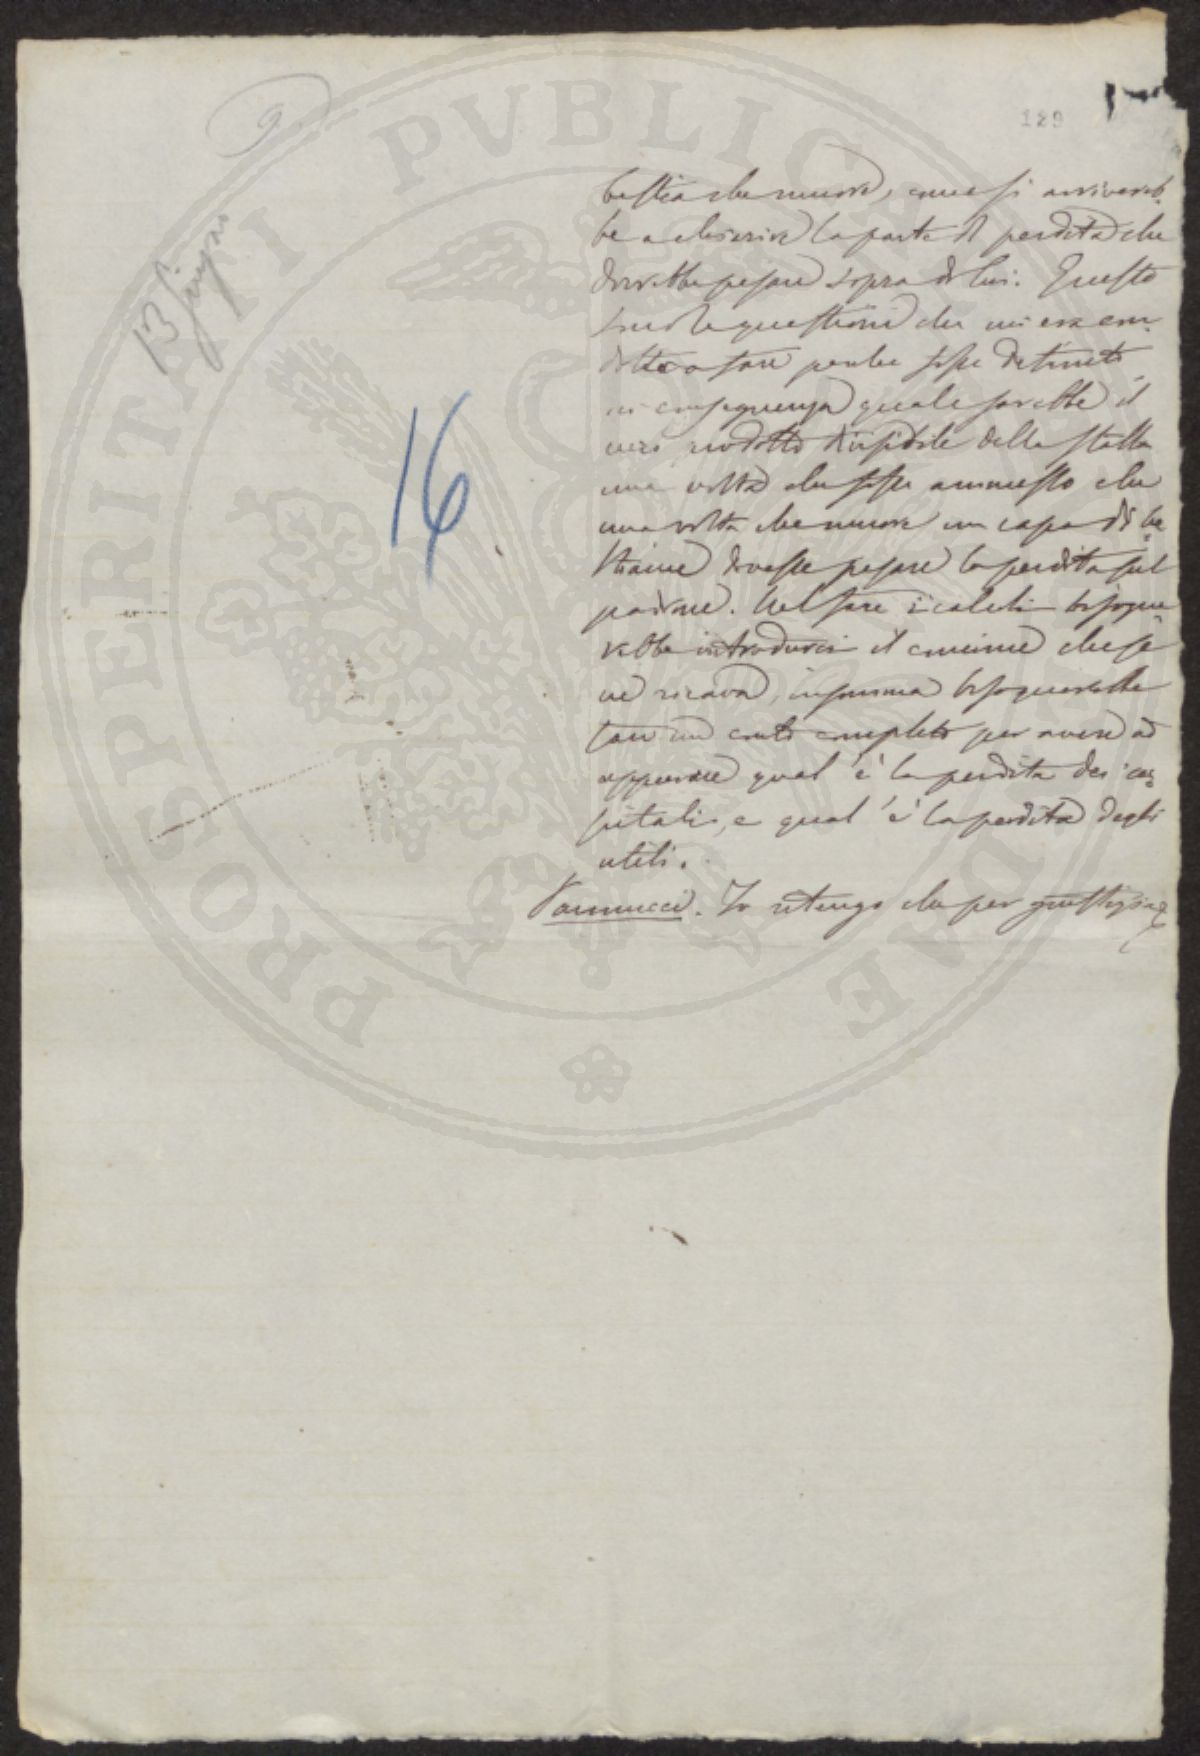 9
129
13 giugno
16
bestia che muore, come si arrivereb-
be a chiarire la parte di perdita che
dovrebbe pesare sopra di lui. Queste
sono le questioni che mi era con-
dotto a fare perché fosse definito
in conseguenza quale sarebbe il
vero prodotto divisibile della stalla
una volta che fosse ammesso che
una volta che muore un capo di be-
stiame dovesse pesare la perdita sul
padrone. Nel fare i calcoli bisogne
rebbe introdurci il concime che se
ne ricava, insomma bisognerebbe
fare un conto completo per avere ad
apparire qual è la perdita dei ca-
pitali, e qual è la perdita degli
utili.
Vannucci. Io ritengo che per giustizia
PROSPERITATI PVBLICAE AVGENDAE